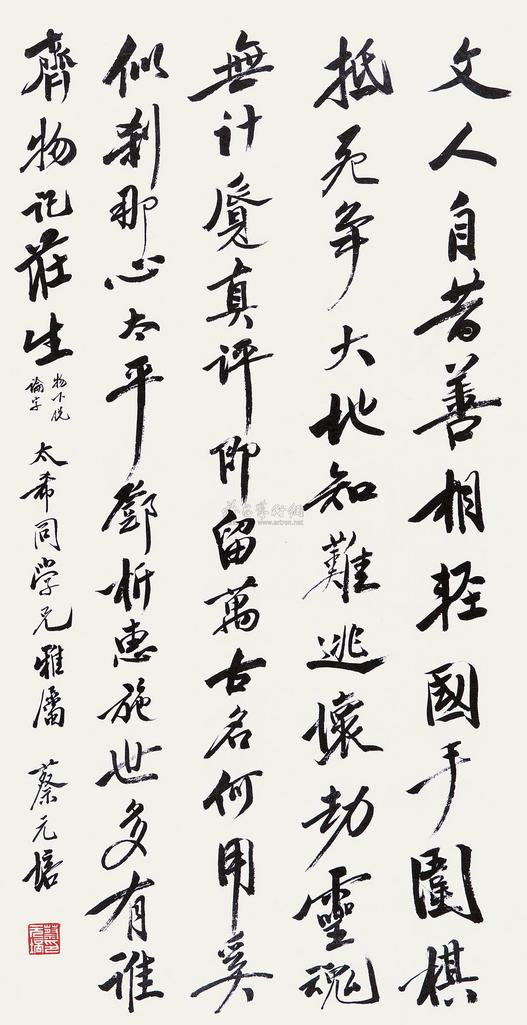 文人自昔善相輕國手圍棋
抵死争大地知難逃壞劫靈魂
無計覓真評即留萬古名何用奚
似刹那心太平鄧析惠施世多有誰
齊物莊生
物下脱
論字
太希同學兄雅屬 蔡元培
www.artron.net